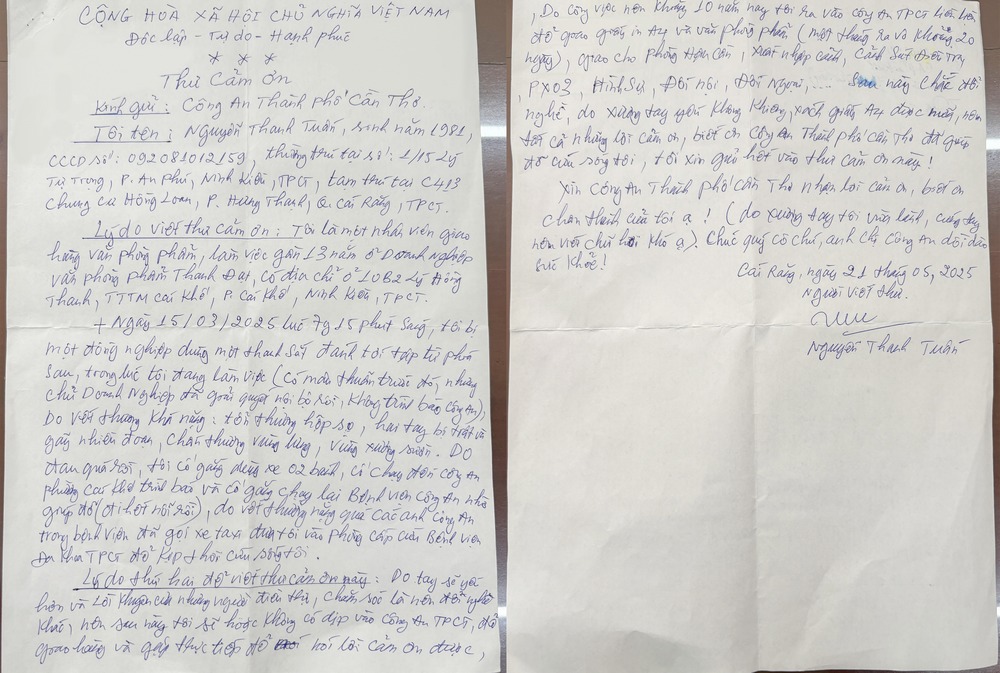 CỘNG HOÀ XÃ HỘI CHỦ NGHĨA VIỆT NAM
Độc lập - Tự do - Hạnh phúc
* * *
Thư Cảm ơn
Kính gửi: Công An Thành phố Cần Thơ.
Tôi tên: Nguyễn Thanh Tuấn, sinh năm 1981,
CCCD số: 092081012159, thường trú tại số: 1/15 Lý
Tự Trọng, P. An Phú, Ninh Kiều, TPCT, tạm trú tại C4B
Chung cư Hồng Loan, P. Hưng Thạnh, Q. Cái Răng, TPCT.
Lý do viết thư cảm ơn: Tôi là một nhân viên giao
hàng văn phòng phẩm, làm việc gần 13 năm ở Doanh Nghiệp
văn phòng phẩm Thanh Đạt, có địa chỉ ở 10B2 Lý Hồng
Thanh, TTTM Cái Khế, P. Cái Khế, Ninh Kiều, TPCT.
+ Ngày 15/03/2025 lúc 7g15 phút sáng, tôi bị
một đồng nghiệp dùng một thanh sắt đánh tới tấp từ phía
sau, trong lúc tôi đang làm việc (có mâu thuẫn trước đó, nhưng
chủ Doanh Nghiệp đã giải quyết nội bộ rồi, không trình báo công An),
Do vết thương khá nặng: tôi thương hộp sọ, hai tay bị trật và
gãy nhiều đoạn, chấn thương vùng lưng, vùng xương sườn. Do
đau quá rồi, tôi cố gắng dùng xe 02 bánh, cố chạy đến công An
phường Cái Khế trình báo và cố gắng chạy lại Bệnh viện Công An nhờ
giúp đỡ (đi hết nổi rồi), do vết thương nặng quá các anh công An
trong bệnh viện đã gọi xe taxi đưa tôi vào phòng cấp cứu Bệnh viện
Đa Khoa TPCT để kịp thời cứu sống tôi.
Lý do thứ hai để viết thư cảm ơn này: Do tay sẽ yếu
hơn và lời khuyên của những người điều trị, chăm sóc là nên đổi nghề
khác, nên sau này tôi sẽ hoặc không có dịp vào công An TPCT, để
giao hàng và gặp trực tiếp để nói lời cảm ơn được,
Do công việc nên khoảng 10 năm nay tôi ra vào công An TPCT liên liên
để giao giấy in A4 và văn phòng phẩm (một tháng ra vô khoảng 20
ngày), giao cho phòng Hậu Cần, Xuất nhập cảnh, Cảnh Sát Điều Tra,
PX03, Hình Sự, Đối nội, Đối Ngoại, .... Sau này chắc đổi
nghề, do xương tay yếu không khiêng, xách giấy A4 được nữa, nên
tất cả những lời cảm ơn, biết ơn công An Thành phố Cần Thơ đã giúp
đỡ cứu sống tôi, tôi xin gửi hết vào thư cảm ơn này!
Xin Công An Thành phố Cần Thơ nhận lời cảm ơn, biết ơn
chân thành của tôi ạ! (do xương tay tôi vừa lành, cứng tay
nên viết chữ hơi khó ạ). Chúc quý cô chú, anh chị Công An dồi dào
sức khỏe!
Cái Răng, ngày 21 tháng 05, 2025
Người viết thư.
Nguyễn Thanh Tuấn